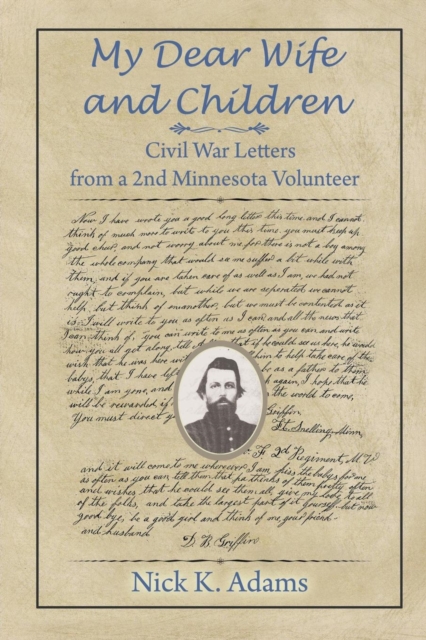 My Dear Wife
and Children
Civil War Letters
from a 2nd Minnesota Volunteer
Now I have wrote you a good long letter this time, and I cannot
think of much more to write to you this time. you must keep up
good cheer, and not worry about me for there is not a boy among
the whole company that would sa me suffer a bit while with
them, and if you are taken care of as well as I am, we had not
ought to complain, but while we are seperated we cannot
help, but think of one another, but we must be contented as it
is. I will write to you as often as I can and all the news that
I can think of, you can write to me as often as you can and write
how you all get along, tell A that if he could see us here, he would
wish that he was here wi him to help take care of the
babys, that I have lef be as a father to them
while I am gone, and again, I hope that he
will be rewarded if the world to come,
You must direct y Griffin
Ft. Snelling, Minn,
F, 2d Regiment, M. V.
and it will come to me wherever I am, kiss the babys for me
as often as you can tell them that pa thinks of them pretty often
and wishes that he could see them all, give my body to all
of the folks, and take the largest part of it yourself but now
good bye, be a good girl and think of me your friend
and husband
D. B. Griffin
Nick K. Adams